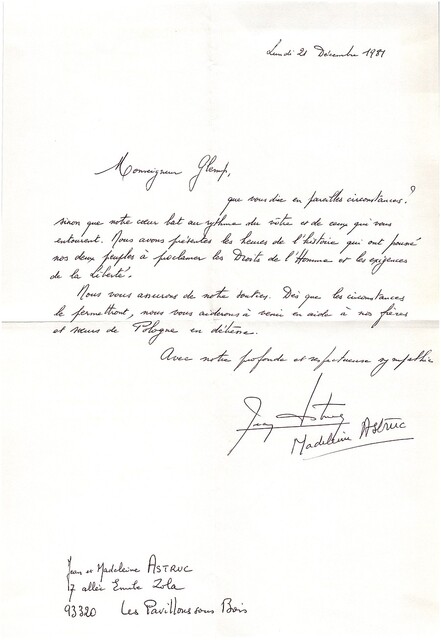 Lundi 21 Décembre 1981
Monseigneur Glemp,
que vous dire en pareilles circonstances ?
sinon que notre cœur bat au rythme du vôtre et de ceux qui vous
entourent. Nous avons présentes les heures de l'histoire qui ont poussé
nos deux peuples à proclamer les Droits de l'Homme et les exigences
de la Liberté.
Nous vous assurons de notre soutien. Dès que les circonstances
le permettront, nous vous aiderons à venir en aide à nos frères
et sœurs de Pologne en détresse.
Avec notre profonde et respectueuse sympathie
Jean Astruc
Madeleine ASTRUC
Jean et Madeleine ASTRUC
17 allée Emile Zola
93320 Les Pavillons sous Bois